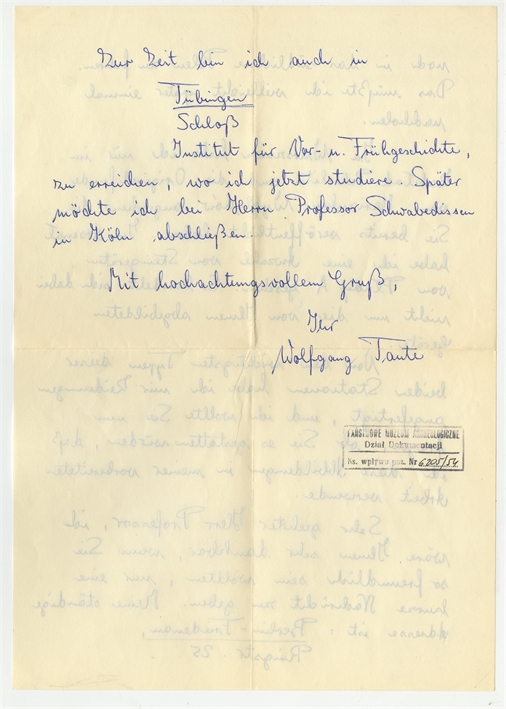 Zur Zeit bin ich auch in
Tübingen
Schloß
Institut für Vor- u. Frühgeschichte,
zu erreichen, wo ich jetzt studiere. Später
möchte ich bei Herrn Professor Schwabedissen
in Köln abschließen.
Mit hochachtungsvollem Gruß,
Ihr
Wolfgang Taute
PAŃSTWOWE MUZEUM ARCHEOLOGICZNE
Dział Dokumentacji
Ks. wpływu poz. Nr 6205/54.